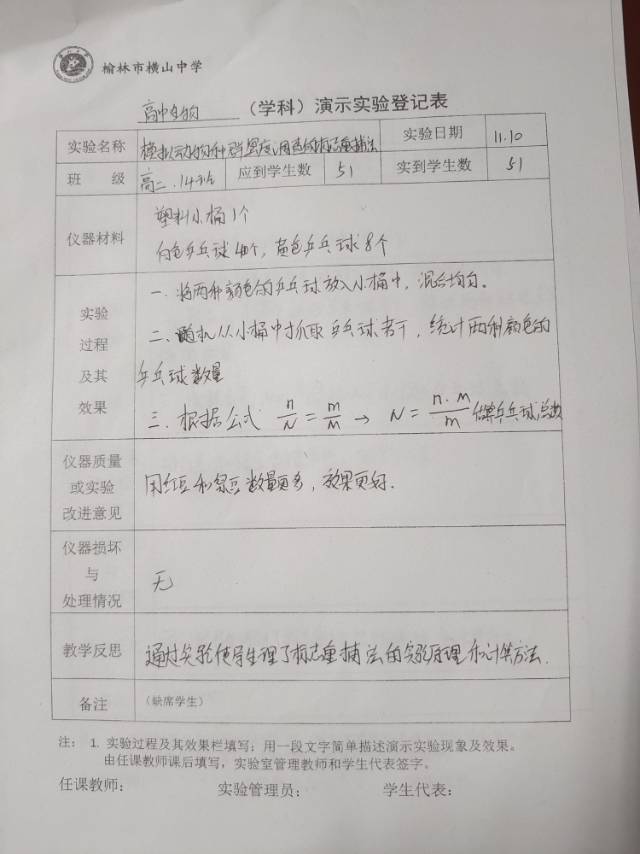 榆林市横山中学
高中生物（学科）演示实验登记表
实验名称 模拟动物种群密度调查的标志重捕法 实验日期 11.10
班 级 高二.14班 应到学生数 51 实到学生数 51
仪器材料
塑料小桶1个
白色乒乓球40个，黄色乒乓球8个
实验
过程
及其
效果
一.将两种颜色的乒乓球放入小桶中，混合均匀。
二.随机从小桶中抓取乒乓球若干，统计两种颜色的
乒乓球数量
三.根据公式 n/N=m/M → N=n.M/m 估算乒乓球总数
仪器质量
或实验
改进意见
用红豆和绿豆数量更多，效果更好.
仪器损坏
与
处理情况
无
教学反思 通过实验使学生理了标志重捕法的实验原理和计算方法.
备注 （缺席学生）
注： 1. 实验过程及其效果栏填写：用一段文字简单描述演示实验现象及效果。
由任课教师课后填写，实验室管理教师和学生代表签字。
任课教师： 实验管理员： 学生代表：